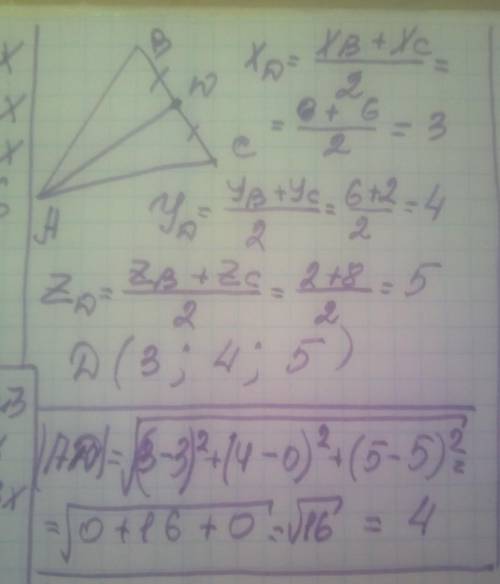 B
D
C
A
X_D = (X_B + X_C)/2 =
= (0 + 6)/2 = 3
Y_D = (Y_B + Y_C)/2 = (6+2)/2 = 4
Z_D = (Z_B + Z_C)/2 = (2+8)/2 = 5
D (3; 4; 5)
|AD| = √((3-3)² + (4-0)² + (5-5)²) =
= √(0+16+0) = √16 = 4